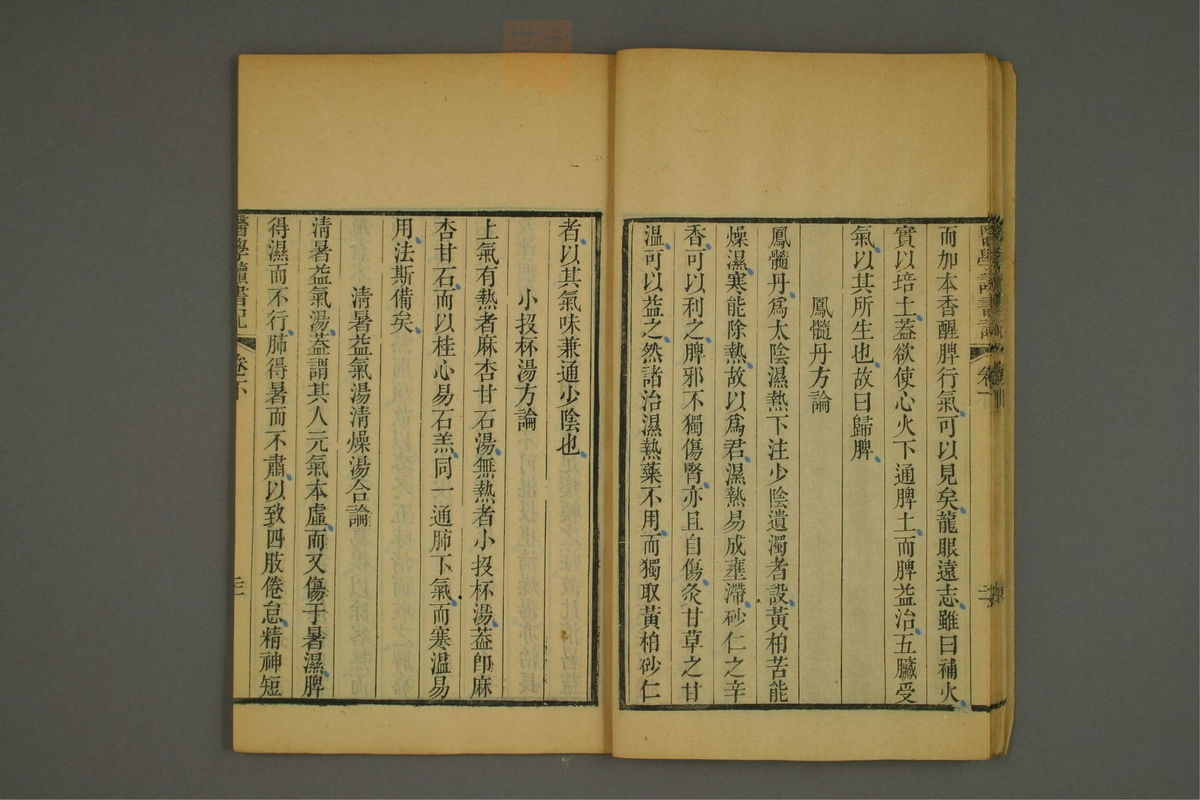 而加本香醒脾行氣可以見矣龍眼遠志雖曰補火
實以培土葢欲使心火下通脾土而脾益治五臟受
氣以其所生也故曰歸脾
鳳髓丹方論
鳳髓丹爲太陰濕熱下注少陰遺濁者設黃柏苦能
燥濕寒能除熱故以爲君濕熱易成壅滯砂仁之辛
香可以利之脾邪不獨傷腎亦且自傷灸甘草之甘
溫可以益之然諸治濕熱藥不用而獨取黃柏砂仁
者以其氣味兼通少陰也
小投杯湯方論
上氣有熱者麻杏甘石湯無熱者小投杯湯葢卽麻
杏甘石而以桂心易石羔同一通肺下氣而寒溫易
用法斯備矣
淸暑益氣湯淸燥湯合論
淸暑益氣湯葢謂其人元氣本虛而又傷于暑濕脾
得濕而不行肺得暑而不肅以致四肢倦怠精神短
醫學讀書記 卷下